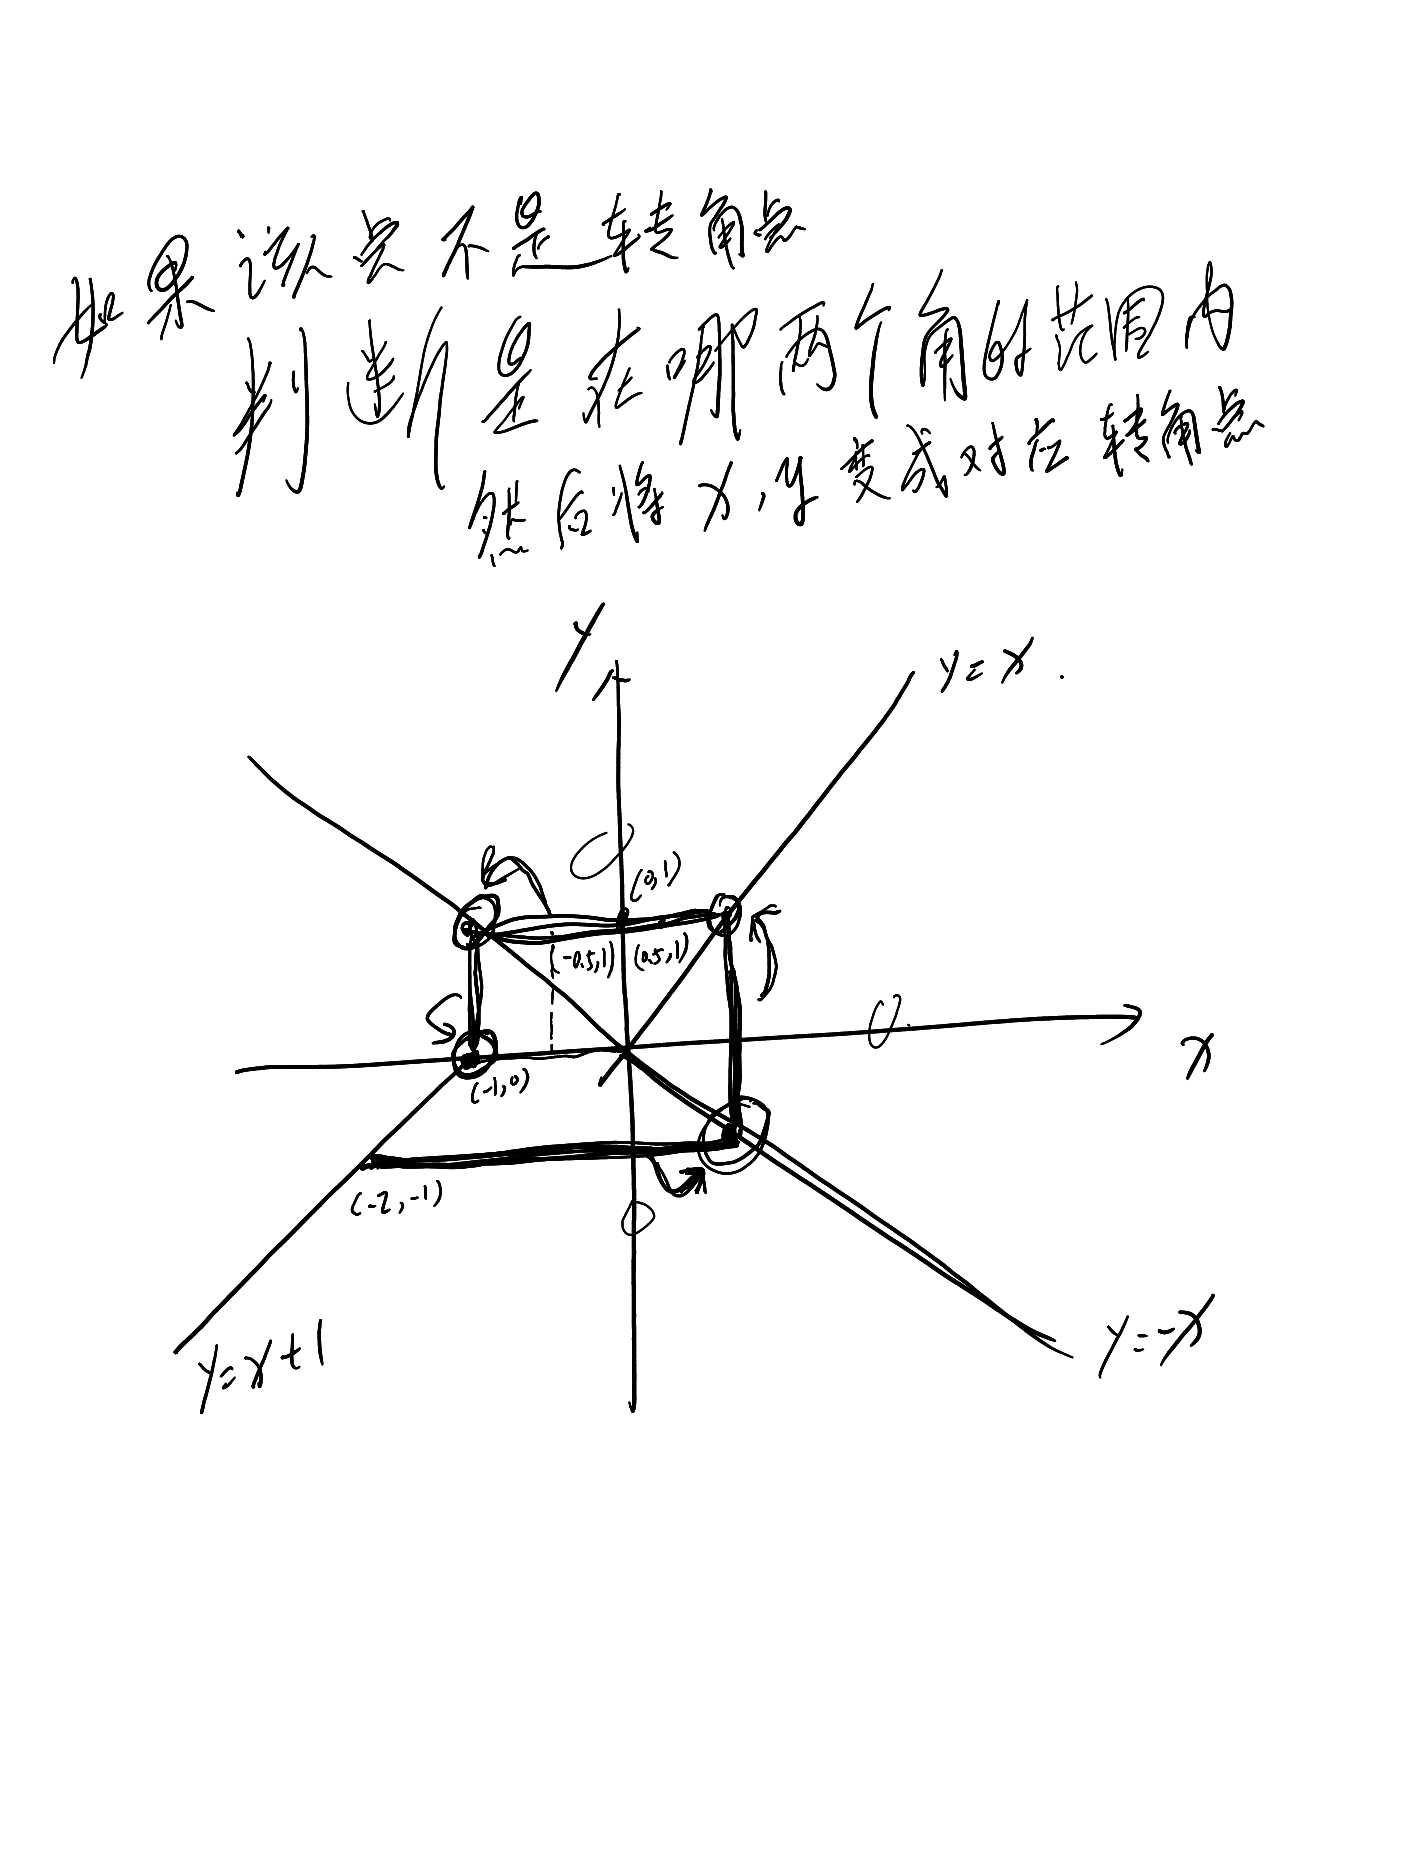 如果该点不是转角点
判断是在哪两个角的范围内
然后将x,y变成对应转角点
y
y=x.
(0,1)
(-0.5,1) (0.5,1)
x
(-1,0)
(-2,-1)
y=x+1
y=-x